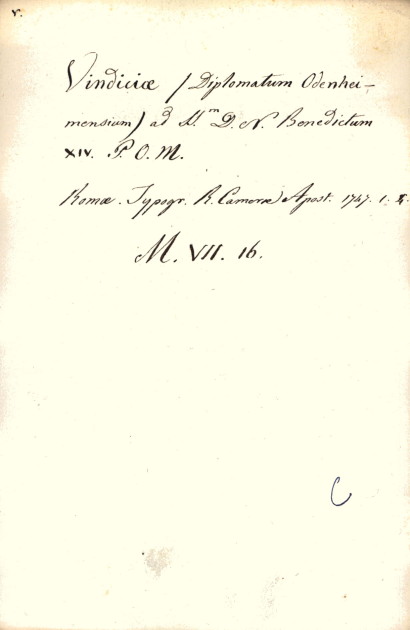 V.
Vindiciæ (Diplomatum Odenhei-
mensium) ad SS.m D. N. Benedictum
XIV. P. O. M.
Romæ. Typogr. R. Cameræ Apost. 1747. 1.
M. VII. 16.
C